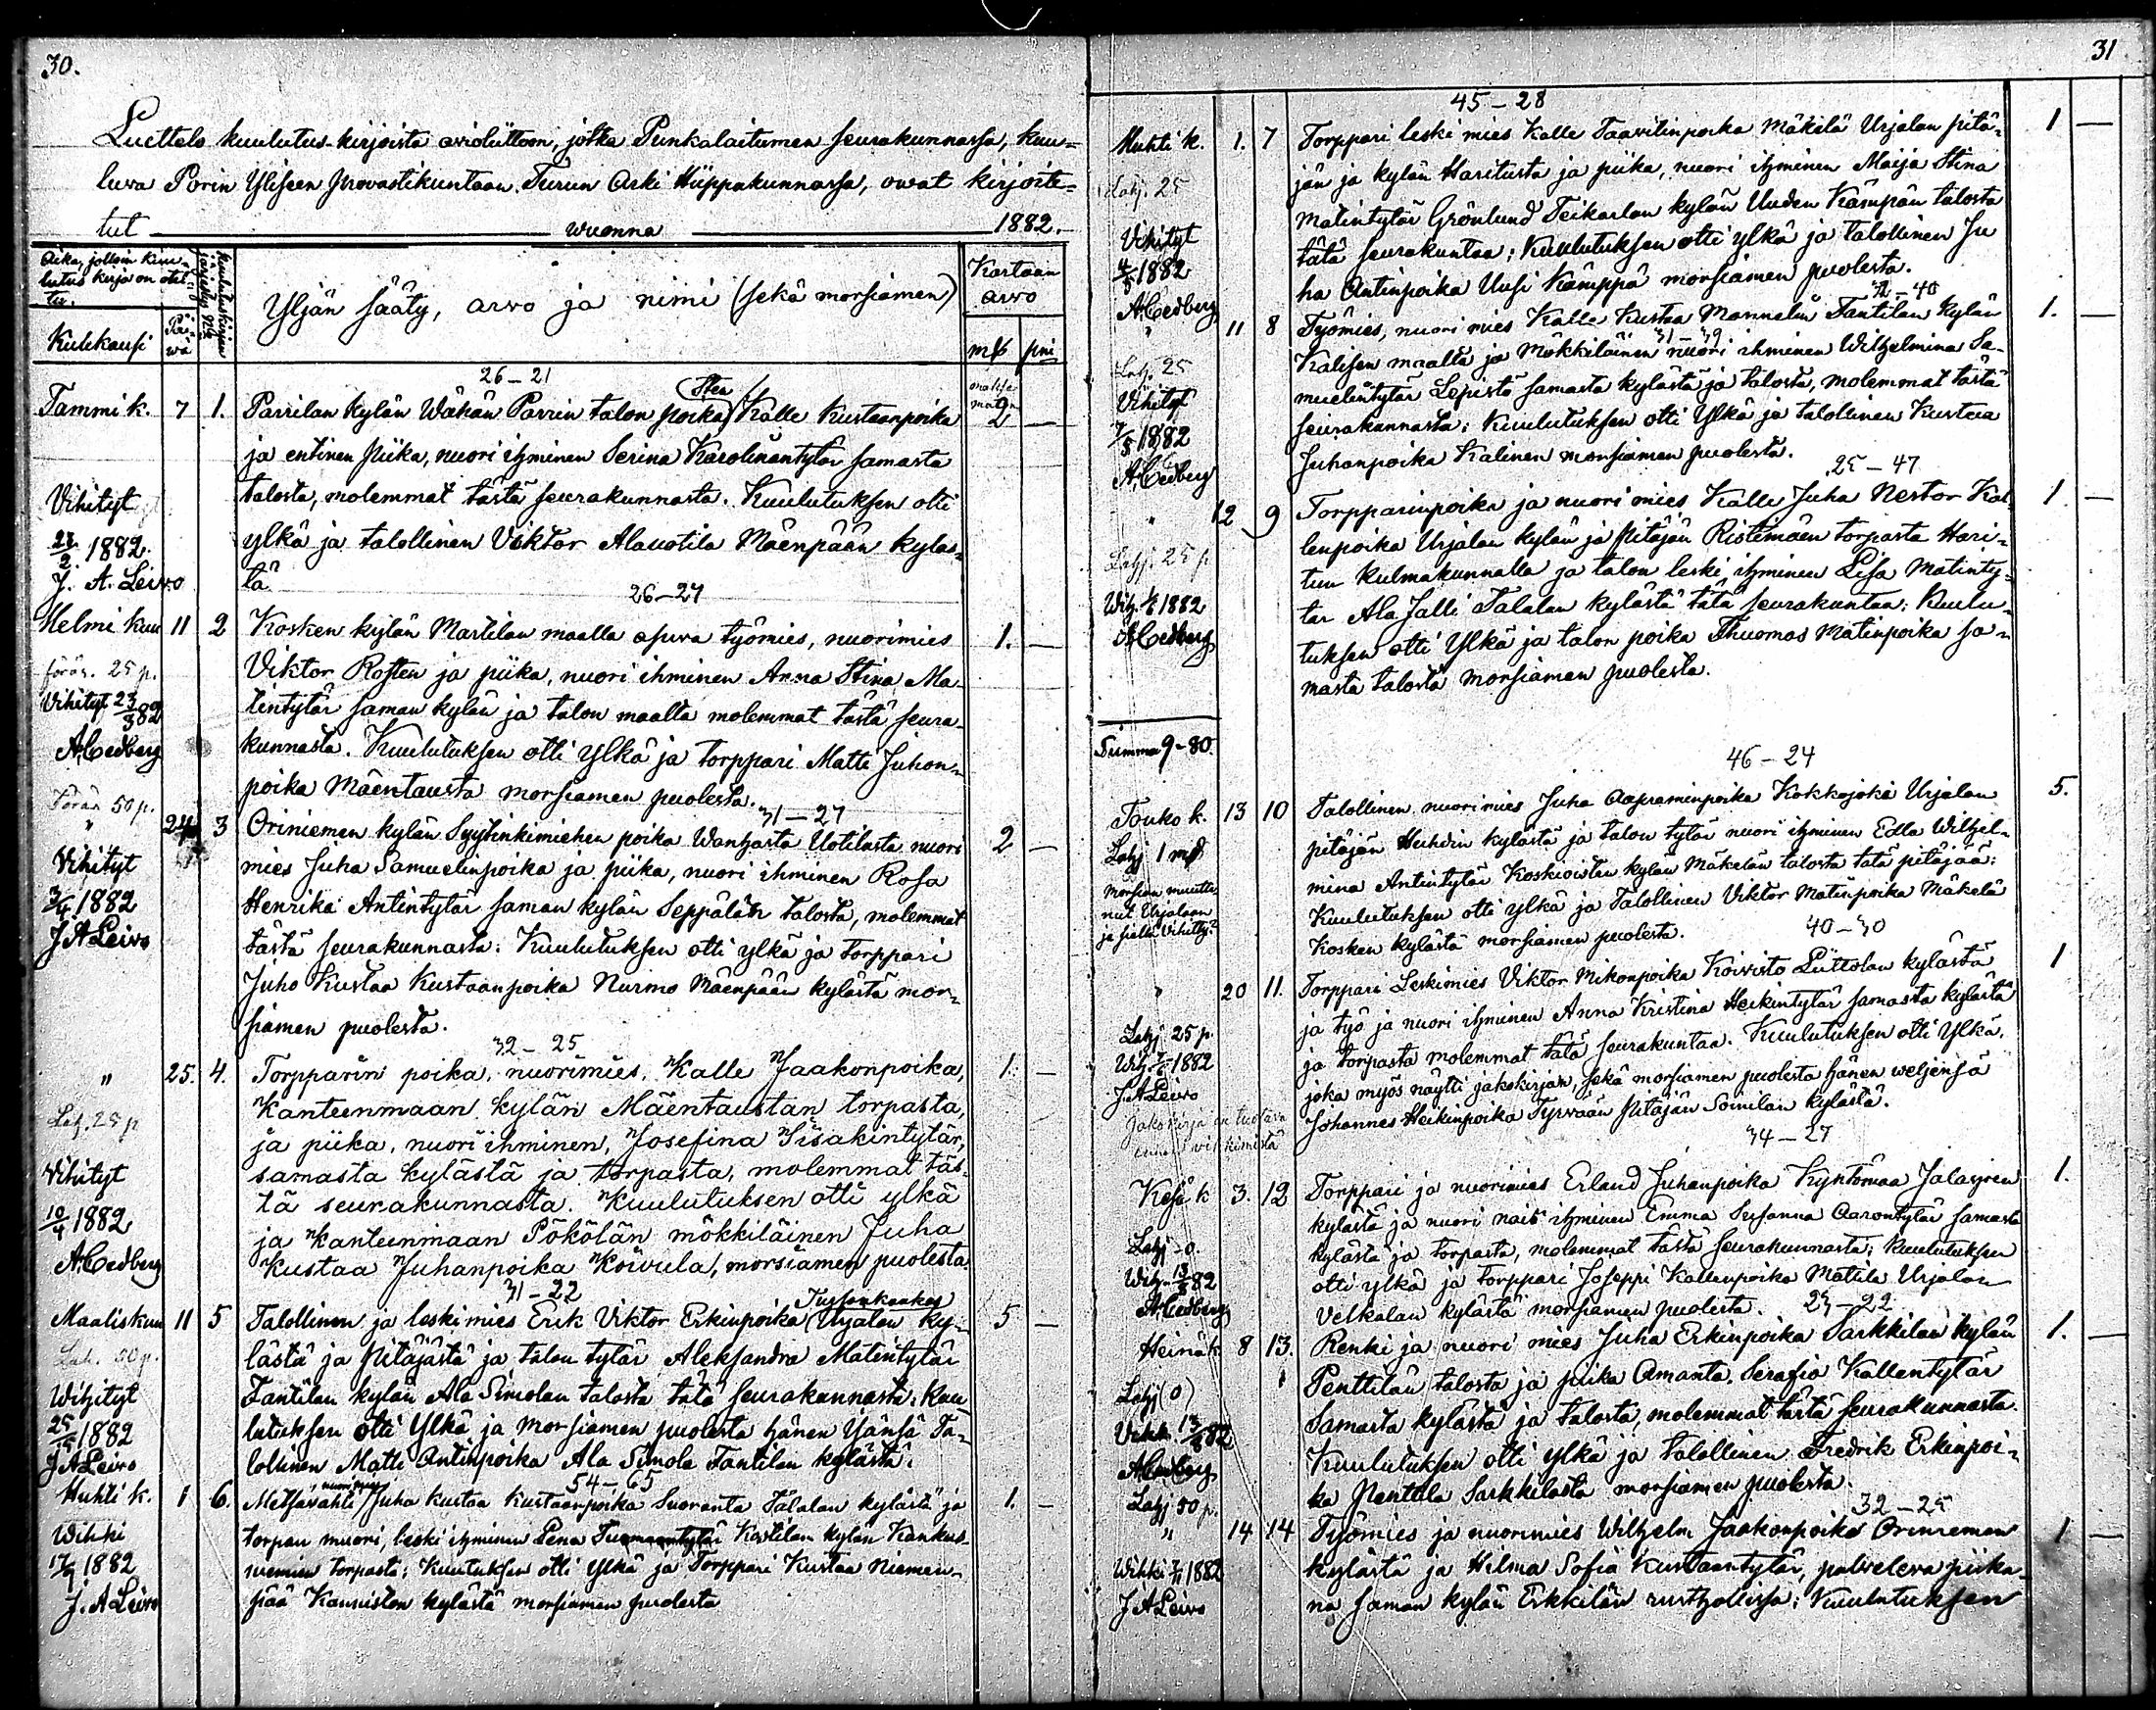 30.
Luettelo kuulutus-kirjoista avioliittoon, jotka Punkalaitumen seurakunnassa, kuu=
luva Porin Yliseen Provastikuntaan, Turun Arki Hiippakunnassa, ovat kirjoite=
tut wuonna 1882.
Aika, jolloin kuu=
lutus kirja on otet=
tu.
Kuukausi
Päi=
wä
kuulutuskirjan
järjestys
Yljän sääty, arvo ja nimi (sekä morsiamen)
Kartaan
arvo
mk pni
26-21
Tammi k. 7 1. Parrilan kylän Wähän Parrin talon poika Kalle Kustaanpoika 2 —
ja entinen piika, nuori ihminen Serina Karolinantytär samasta
talosta, molemmat tästä seurakunnasta. Kuulutuksen otti
Vihityt
ylkä ja talollinen Viktor Alauotila Mäenpään kyläs=
27/2 1882.
tä
J. A. Leivo
26-27
Helmi kuu 11 2 Kosken kylän Martilan maalla apwa työmies, nuorimies 1. —
25 p.
Viktor Rosten ja piika, nuori ihminen Anna Stina Ma=
Vihityt 23/3 82
tintytär saman kylän ja talon maalta molemmat tästä seura=
A. Cedberg
kunnasta. Kuulutuksen otti ylkä ja torppari Matti Juhon=
poika Mäentausta morsiamen puolesta.
50 p.
31-27
" 24 3 Oriniemen kylän Syytinkimiehen poika Wanhasta Uotilasta nuori 2 —
Vihityt
mies Juha Samuelinpoika ja piika, nuori ihminen Rosa
3/4 1882
Henrika Antintytär saman kylän Seppälän talosta, molemmat
J A Leivo
tästä seurakunnasta: Kuulutuksen otti ylkä ja torppari
Juho Kustaa Kustaanpoika Nurmo Mäenpään kylästä mor=
siamen puolesta.
32-25
" 25. 4. Torpparin poika, nuorimies, Kalle Jaakonpoika, 1. —
Kanteenmaan kylän Mäentaustan torpasta,
Lah. 25 p
ja piika, nuori ihminen, Josefina Iisakintytär,
Vihityt
samasta kylästä ja torpasta, molemmat täs=
10/4 1882
tä seurakunnasta. Kuulutuksen otti ylkä
ja Kanteenmaan Pökölän mökkiläinen Juha
A. Cedberg
Kustaa Juhanpoika Koivula, morsiamen puolesta
31-22
Maaliskuu 11 5 Talollinen ja leskimies Erik Viktor Erkinpoika Urjalan ky= 5 —
Lah. 50 p.
lästä ja pitäjästä ja talon tytär Aleksandra Matintytär
Wihityt
Tantilan kylän Ala Simolan talosta tätä seurakunnasta: Kuu
1882
lutuksen otti Ylkä ja morsiamen puolesta hänen Isänsä Ta=
J A Leivo
lollinen Matti Antinpoika Ala Simola Tantilan kylästä.
54-65
Huhti k. 1 6. Metsävahti Juha Kustaa Kustaanpoika Suoranta Talalan kylästä ja 1. —
Wihki
torpan muori, leski ihminen Lena Kostilan kylän Kankas
1882
niemen torpasta: Kuulutuksen otti Ylkä ja Torppari Kustaa Niemen=
J. A Leivo
pää Kanniston kylästä morsiamen puolesta
31
45-28
Huhti k. 1. 7 Torppari leski mies Kalle Taavitinpoika Mäkelä Urjalan pitä= 1 —
Lahj. 25
jän ja kylän Haritusta ja piika, nuori ihminen Maija Stina
Matintytär Grönlund Teikarlan kylän Uuden Kämpän talosta
Vihityt
tätä seurakuntaa; Kuulutuksen otti ylkä ja talollinen Ju
4/5 1882
ha Antinpoika Uusi Kämppä morsiamen puolesta.
A. Cedberg
-40
" 11 8 Työmies, nuori mies Kalle Kustaa Mannelin Tantilan kylän 1. —
31-39
Lahj. 25
Kalisen maalta ja Mökkiläinen nuori ihminen Wilhelmina Sa=
Vihityt
muelintytär Lepistö samasta kylästä ja talosta, molemmat tästä
7/5 1882
seurakunnasta: Kuulutuksen otti Ylkä ja talollinen Kustaa
A. Cedberg
Juhanpoika Kalinen morsiamen puolesta.
25-47
" 12 9 Torpparinpoika ja nuori mies Kalle Juha Nestor Kal= 1 —
Lahj. 25 p
lenpoika Urjalan kylän ja Pitäjän Ristimäen torpasta Hari=
tun kulmakunnalla ja talon leski ihminen Lisa Matinty=
Wih. 1882
tär Ala Jalli Talalan kylästä tätä seurakuntaa: Kuulu=
A Cedberg
tuksen otti Ylkä ja talon poika Thuomas Matinpoika sa=
masta talosta morsiamen puolesta.
Summa 9-80.
46-24
Touko k. 13 10 Talollinen nuorimies Juha Aapraminpoika Kokkojoki Urjalan 5.
Lahj 1 mk.
pitäjän Huhdin kylästä ja talon tytär nuori ihminen Edla Wilhel=
morsian muutta
nut Urjalaan
mina Antintytär Koskioisten kylän Mäkelän talosta tätä pitäjää:
ja siellä vihitty?
Kuulutuksen otti ylkä ja Talollinen Viktor Matinpoika Mäkelä
Kosken kylästä morsiamen puolesta.
40-30
" 20 11. Torppari Leskimies Viktor Mikonpoika Koivisto Liittolan kylästä 1
ja työ ja nuori ihminen Anna Kristina Heikintytär samasta kylästä
Lahj. 25 p.
ja torpasta molemmat tätä seurakuntaa. Kuulutuksen otti Ylkä,
Wih. 1882
joka myös näytti jakokirjan, sekä morsiamen puolesta hänen weljensä
J A Leivo
Johannes Heikinpoika Tyrvään pitäjän Soinilan kylästä.
Jakokirja on tuotava
ennen vihkimistä
34-27
Kesä k 3. 12 Torppari ja nuorimies Erland Juhanpoika Kyntömaa Jalasjoen 1.
kylästä ja nuori nais ihminen Emma Susanna Aarontytär samasta
Lahj - 0.
kylästä ja torpasta, molemmat tästä seurakunnasta; Kuulutuksen
Wih. 82
otti ylkä ja torppari Joseppi Kallenpoika Matila Urjalan
A. Cedberg
Velkalan kylästä morsiamen puolesta.
-22
Heinä k 8 13. Renki ja nuori mies Juha Erkinpoika Sarkkilan kylän 1. —
Lahj (0)
Penttilän talosta ja piika Amanta Serafia Kallentytär
Samasta kylästä ja talosta, molemmat tästä seurakunnasta.
Vihk. 82
Kuulutuksen otti ylkä ja talollinen Fredrik Erkinpoi=
A Cedberg
ka Penttilä Sarkkilasta morsiamen puolesta.
Lahj 50 p.
32-25
" 14 14 Työmies ja nuorimies Wilhelm Jaakonpoika Oriniemen 1 —
Wihki 1882
kylästä ja Hilma Sofia Kustaantytär, palveleva piika
J A Leivo
na saman kylän Erkkilän rusthollissa: Kuulutuksen